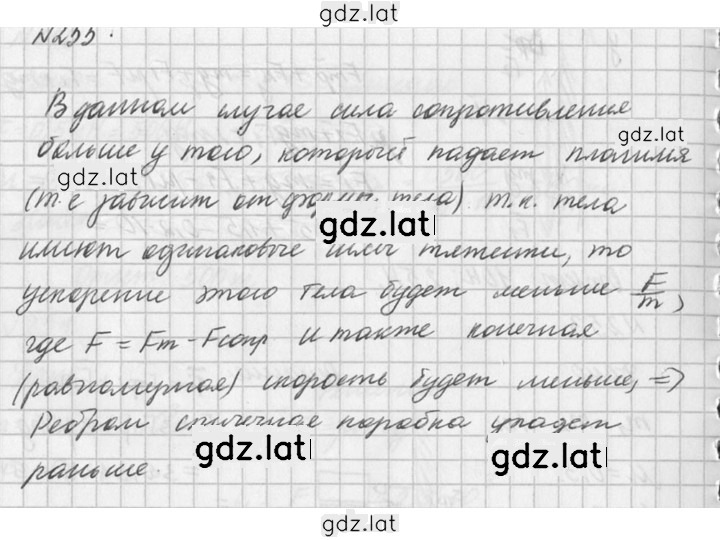 gdz.lat
N255.
В данном случае сила сопротивления
gdz.lat
больше у того, который падает плашмя
gdz.lat
(т.е зависит от формы тела) т.к. тела
gdz.lat
имеют одинаковые силы тяжести, то
ускорение этого тела будет меньше F/m,
где F = Fт - Fсопр и также конечная
(равномерная) скорость будет меньше, =>
Ребром спичечная коробка упадет
gdz.lat gdz.lat
раньше.
gdz.lat